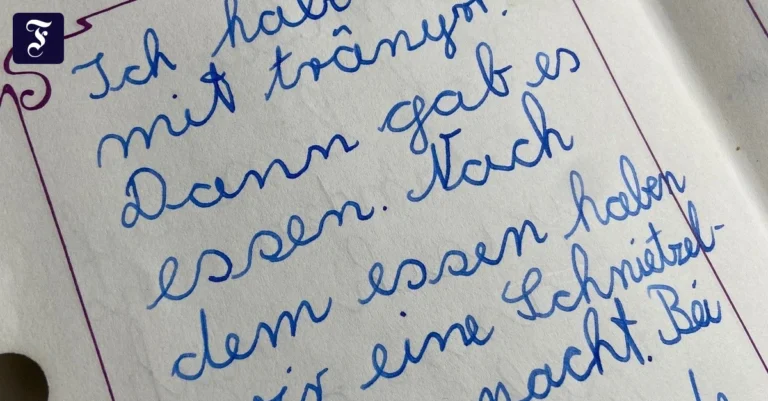 F
Ich hab
mit
Dann gab es
essen. Nach
dem essen haben
wir eine Schnietzel-
macht. Bei